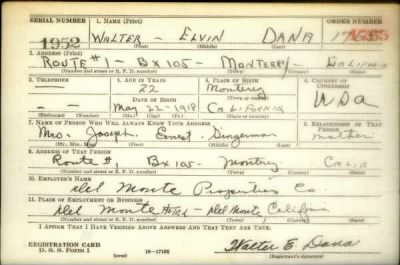 SERIAL NUMBER 1. NAME (Print) ORDER NUMBER
1952 WALTER - ELVIN DANA
(First) (Middle) (Last)
2. ADDRESS (Print)
ROUTE #1 - BX 105 - MONTEREY - CALIFORNIA
(Number and street or R. F. D. number) (Town) (County) (State)
3. TELEPHONE 4. AGE IN YEARS 5. PLACE OF BIRTH 6. COUNTRY OF CITIZENSHIP
22 Monterey
DATE OF BIRTH (Town or county)
- - May 22 - 1918 CALIFORNIA
(Exchange) (Number) (Mo.) (Day) (Yr.) (State or country)
7. NAME OF PERSON WHO WILL ALWAYS KNOW YOUR ADDRESS 8. RELATIONSHIP OF THAT PERSON
Mrs. Joseph Ernest mother
(Mr., Mrs., Miss) (First) (Middle) (Last)
9. ADDRESS OF THAT PERSON
Route #1, Bx 105 -
(Number and street or R. F. D. number) (Town) (County) (State)
10. EMPLOYER'S NAME
Del Monte Properties Co.
11. PLACE OF EMPLOYMENT OR BUSINESS
Del Monte Hotel - Del Monte California
(Number and street or R. F. D. number) (Town) (County) (State)
I AFFIRM THAT I HAVE VERIFIED ABOVE ANSWERS AND THAT THEY ARE TRUE.
REGISTRATION CARD
D. S. S. Form 1 16-17105 Walter E. Dana
(Registrant's signature)